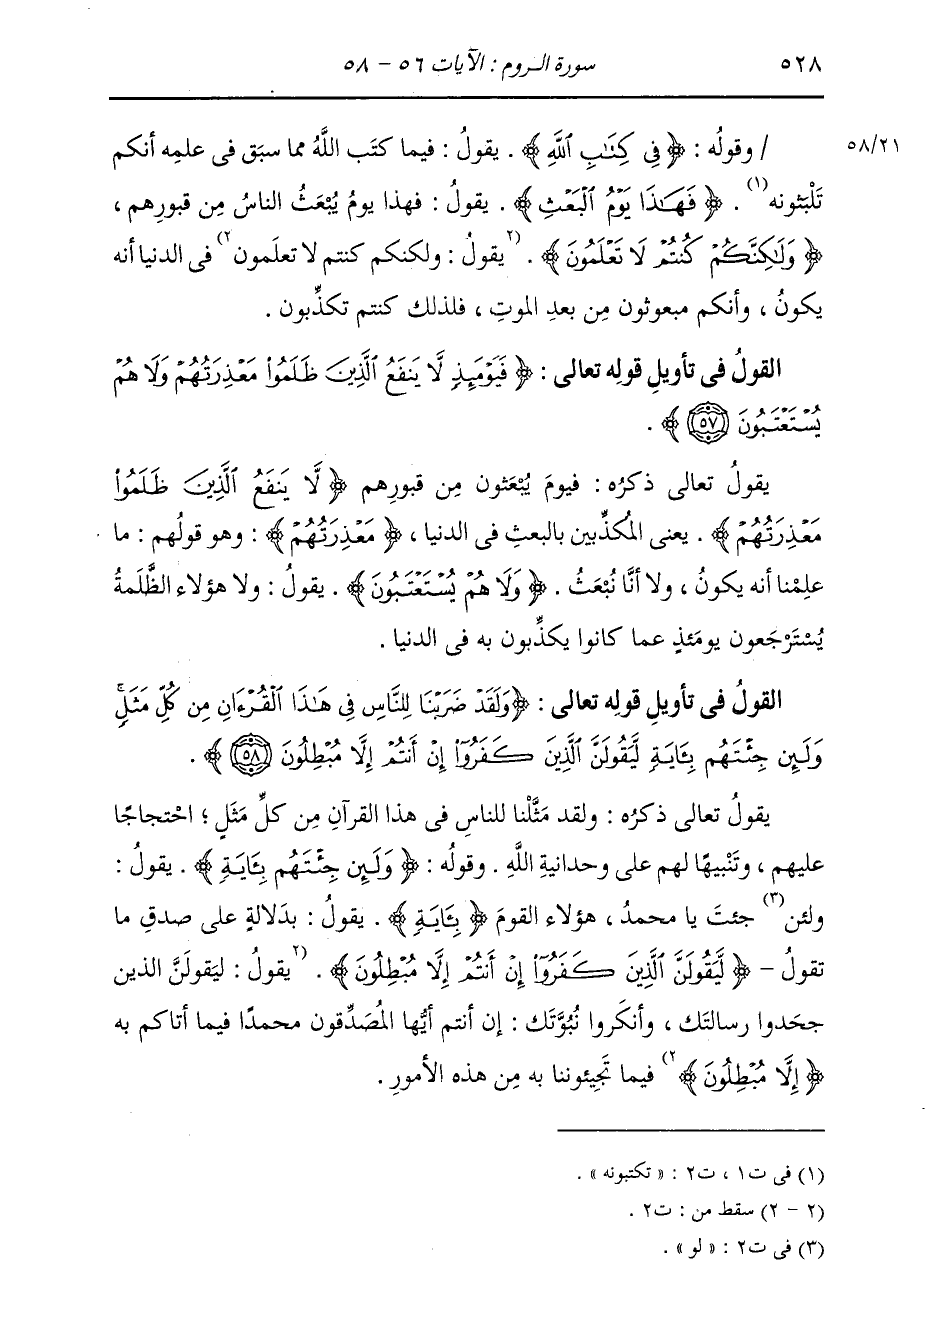 ٥٢٨ سورة الروم : الآيات ٥٦ - ٥٨
٥٨/٢١ / وقولُه : ﴿ فِى كِتَٰبِ ٱللَّهِ ﴾ . يقولُ : فيما كتَب اللَّهُ مما سبَق فى علمِه أنكم
تَلْبَثونه(١) . ﴿ فَهَٰذَا يَوْمُ ٱلْبَعْثِ ﴾ . يقولُ : فهذا يومُ يُبْعَثُ الناسُ مِن قبورِهم ،
﴿ وَلَٰكِنَّكُمْ كُنتُمْ لَا تَعْلَمُونَ ﴾ . (٢يقولُ : ولكنكم كنتم لا تعلَمون٢) فى الدنيا أنه
يكونُ ، وأنكم مبعوثون مِن بعدِ الموتِ ، فلذلك كنتم تكذِّبون .
القولُ فى تأويلِ قولِه تعالى : ﴿ فَيَوْمَئِذٍ لَّا يَنفَعُ ٱلَّذِينَ ظَلَمُوا۟ مَعْذِرَتُهُمْ وَلَا هُمْ
يُسْتَعْتَبُونَ ٥٧ ﴾ .
يقولُ تعالى ذكرُه : فيومَ يُبْعَثون مِن قبورِهم ﴿ لَّا يَنفَعُ ٱلَّذِينَ ظَلَمُوا۟
مَعْذِرَتُهُمْ ﴾ . يعنى المُكذِّبين بالبعثِ فى الدنيا ، ﴿ مَعْذِرَتُهُمْ ﴾ : وهو قولُهم : ما
علِمْنا أنه يكونُ ، ولا أنَّا نُبْعَثُ . ﴿ وَلَا هُمْ يُسْتَعْتَبُونَ ﴾ . يقولُ : ولا هؤلاء الظَّلَمةُ
يُسْتَرْجَعون يومَئذٍ عما كانوا يكذِّبون به فى الدنيا .
القولُ فى تأويلِ قولِه تعالى : ﴿ وَلَقَدْ ضَرَبْنَا لِلنَّاسِ فِى هَٰذَا ٱلْقُرْءَانِ مِن كُلِّ مَثَلٍ ۚ
وَلَئِن جِئْتَهُم بِـَٔايَةٍ لَّيَقُولَنَّ ٱلَّذِينَ كَفَرُوٓا۟ إِنْ أَنتُمْ إِلَّا مُبْطِلُونَ ٥٨ ﴾ .
يقولُ تعالى ذكرُه : ولقد مَثَّلْنا للناسِ فى هذا القرآنِ مِن كلِّ مَثَلٍ ؛ احْتجاجًا
عليهم ، وتَنْبيهًا لهم على وحدانيةِ اللَّهِ . وقولُه : ﴿ وَلَئِن جِئْتَهُم بِـَٔايَةٍ ﴾ . يقولُ :
ولئن(٣) جئتَ يا محمدُ ، هؤلاء القومَ ﴿ بِـَٔايَةٍ ﴾ . يقولُ : بدَلالةٍ على صدقِ ما
تقولُ - ﴿ لَّيَقُولَنَّ ٱلَّذِينَ كَفَرُوٓا۟ إِنْ أَنتُمْ إِلَّا مُبْطِلُونَ ﴾ . (٢يقولُ : ليَقولَنَّ الذين
جحَدوا رسالتَك ، وأنكَروا نُبُوَّتَك : إن أنتم أيُّها المُصَدِّقون محمدًا فيما أتاكم به
﴿ إِلَّا مُبْطِلُونَ ﴾٢) فيما تَجِيئوننا به مِن هذه الأمورِ .
(١) فى ت١ ، ت٢ : « تكتبونه » .
(٢ - ٢) سقط من : ت٢ .
(٣) فى ت٢ : « لو » .